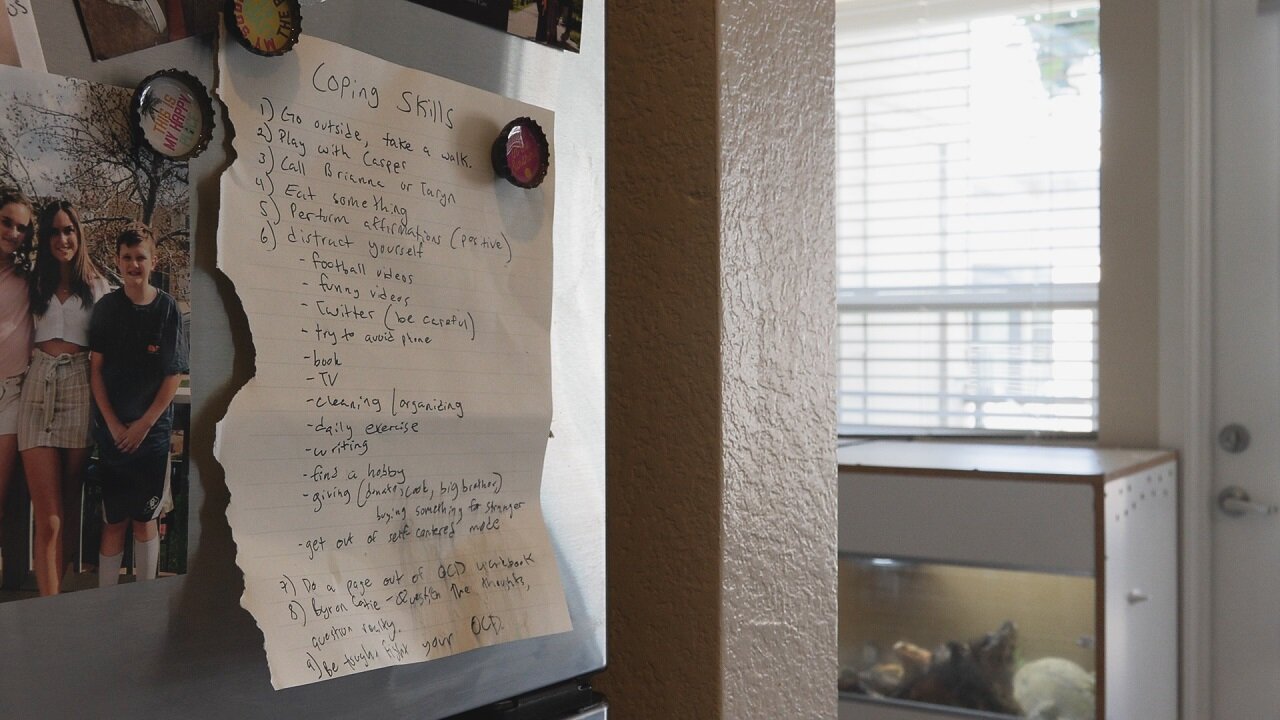 THE MY GOOD
THIS IS
MY HAPPY
Coping Skills
1) Go outside, take a walk.
2) Play with Casper
3) Call Brianna or Taryn
4) Eat something
5) Perform affirmations (positive)
6) distract yourself
- football videos
- funny videos
- Twitter (be careful)
- try to avoid phone
- book
- TV
- cleaning / organizing
- daily exercise
- writing
- find a hobby
- giving (donate, cook, big brother)
buying something for stranger
- get out of self centered mode
7) Do a page out of OCD workbook
8) Byron Catie - Question the thoughts,
question reality.
9) Be tough. fight your OCD.